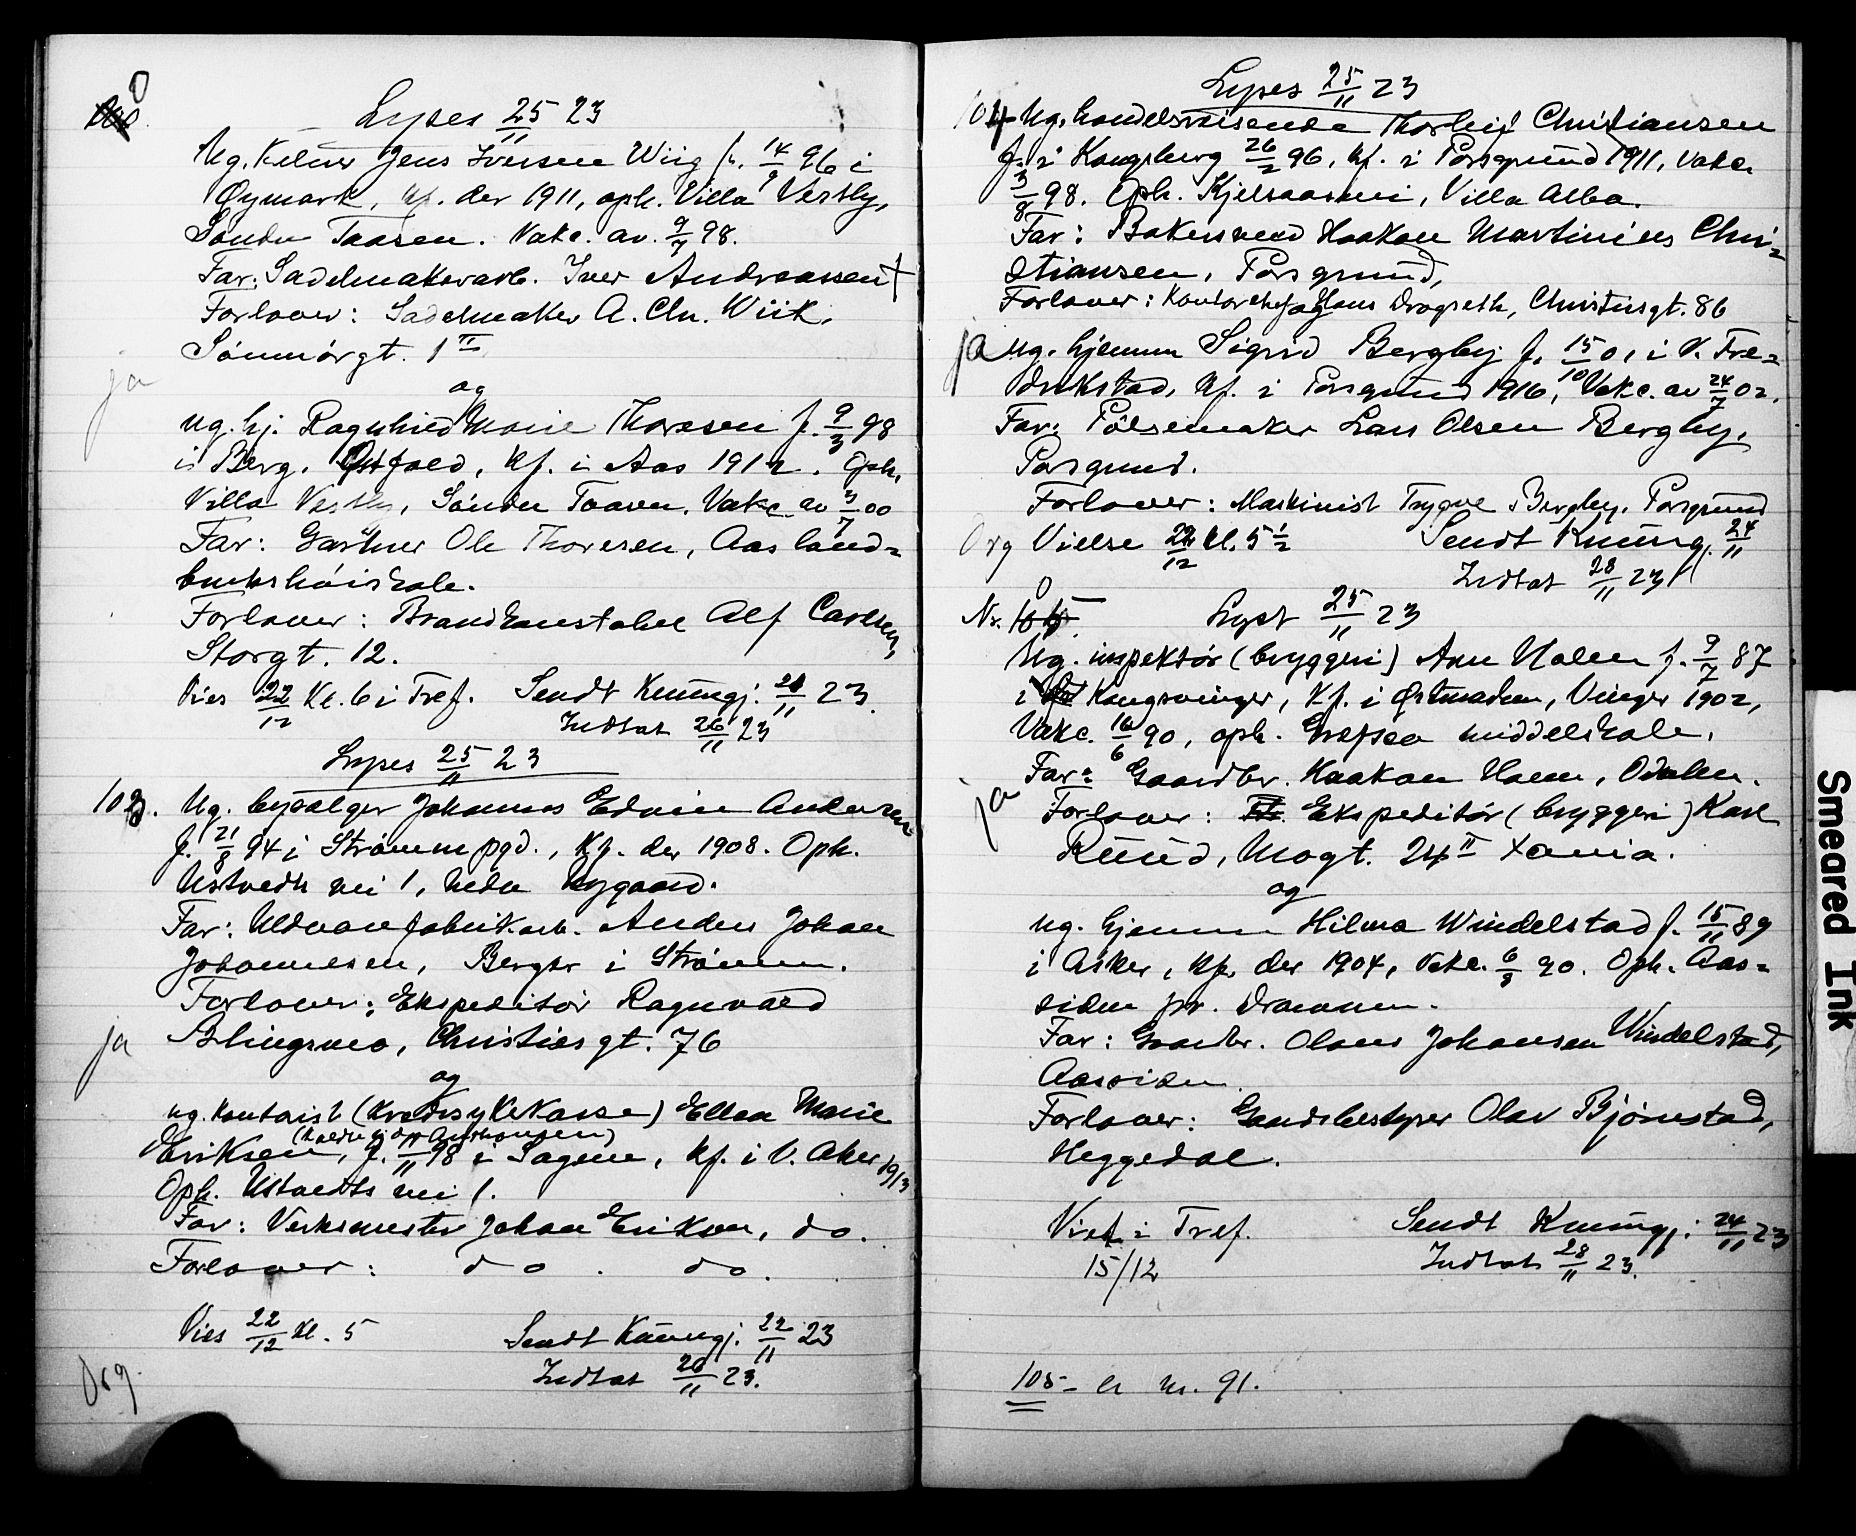 0
Lyses 25/11 23
Ug. Kelner Jens Iversen Wiig f. 14/9 96 i
Øymark, kf. der 1911, oph. Villa Vestby,
Søndre Taasen. Vakc. av. 9/7 98.
Far: Sadelmakerarb. Iver Andreassen †
Forlover: Sadelmaker A. Chr. Wiik,
Sønmørgt. 1 II
ja
og
ug. hj. Ragnhild Marie Thoresen f. 9/3 98
i Berg, Østfold, kf. i Aas 1912. Oph.
Villa Vestby, Søndre Taasen. Vakc. av 3/7 00
Far: Gartner Ole Thoresen, Aas land=
brukshøiskole.
Forlover: Brandkonstabel Alf Carlsen,
Storgt. 12.
Vies 22/12 Kl. 6 i Tref. Sendt Kunngj. 21/11 23.
Indtat 26/11 23
Lyses 25/11 23
103. Ug. bysælger Johannes Edvin Andersen
f. 21/8 94 i Strømm pgd., kf. der 1908. Oph.
Ustvedts vei 1, nedre Nygaard.
Far: Uldvarefabrik.arb. Anders Johan
Johannesen, Berger i Strømm.
Forlover: Ekspeditør Ragnvald
Blingsmo, Christies gt. 76
ja
og
ug. kontorist (Kredssykekasse) Ellen Marie
(kaldte sig opr Anthonsen)
Eriksen, f. /11 98 i Sagene, kf. i V. Aker 19/3
Oph. Ustvedts vei 1.
Far: Verksmester Johan Eriksen, do.
Forlover: do. do.
Vies 22/12 kl. 5 Sendt Kunngj. 22/11 23
Indtat 26/11 23.
Org.
Lyses 25/11 23
104 Ug. handelsreisende Thorleif Christiansen
f. i Kongsberg 26/2 96, kf. i Porsgrund 1911, vakc.
3/8 98. Oph. Kjelsaasvei, Villa Alba.
Far: Bakersvend Haakon Martinius Chri=
stiansen, Porsgrund,
Forlover: Kontorchef Hans Dragseth, Christiesgt. 86
og
ja ug. hjemm Sigrid Bergby f. 15/10 01 i V. Fre=
drikstad, kf. i Porsgrund 1916, Vakc. av 24/7 02.
Far: Pølsemaker Lars Olsen Bergby,
Porsgrund.
Forlover: Maskinist Trygve Bergby, Porsgrund
Org Vielse 22/12 kl. 5 1/2 Sendt Kunng. 24/11
Indtat 28/11 23
0
Nr. 105. Lyst 25/11 23
Ug. inspektør (bryggeri) Arne Holen f. 9/7 87
i Kongsvinger, kf. i Østmarken, Vinger 1902,
Vakc. 16/6 90, oph. Grefsen middelskole.
Far: Gaardbr. Haakon Holen, Odalen.
ja
Forlover: Ekspeditør (bryggeri) Karl
Ruud, Mogt. 24 II Xania.
og
ug. hjemm Hilma Windelstad f. 15/11 89
i Asker, kf. der 1904, Vakc. 6/8 90. Oph. Aas=
siden pr. Drammen.
Far: Gaardbr. Olaus Johansen Windelstad,
Aassiden.
Forlover: Gaardsbestyrer Olav Bjørnstad,
Heggedal.
Viet i Tref. Sendt Kunngj. 24/11 23
15/12 Indtat 28/11 23.
105 - er nr. 91.
Smeared Ink